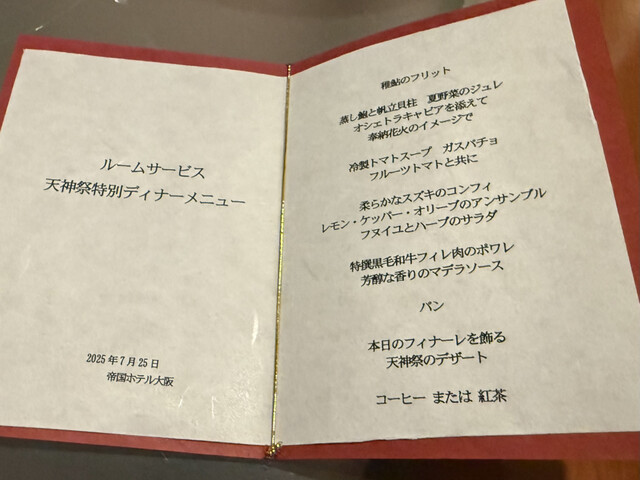 ルームサービス
天神祭特別ディナーメニュー
2025年7月25日
帝国ホテル大阪
稚鮎のフリット
蒸し鮑と帆立貝柱　夏野菜のジュレ
オシェトラキャビアを添えて
奉納花火のイメージで
冷製トマトスープ　ガスパチョ
フルーツトマトと共に
柔らかなスズキのコンフィ
レモン・ケッパー・オリーブのアンサンブル
フヌイユとハーブのサラダ
特撰黒毛和牛フィレ肉のポワレ
芳醇な香りのマデラソース
パン
本日のフィナーレを飾る
天神祭のデザート
コーヒー または 紅茶